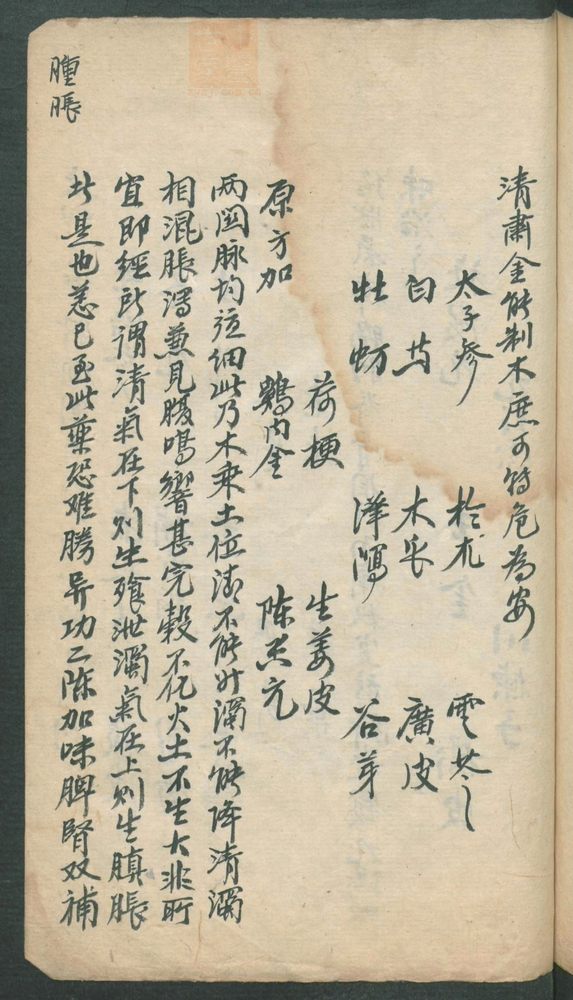 清肅金能制木庶可转危為安
太子參 於朮 雲苓
白芍 木瓜 廣皮
牡蛎 澤瀉 谷芽
荷梗 生姜皮
原方加 鷄內金 陈香元
两関脉均弦細此乃木乘土位清不能升濁不能降清濁
相混脹瀉兼見腸鳴響甚完穀不化火土不生大非所
宜即經所謂清氣在下则生飱泄濁氣在上则生䐜脹
此是也恙已至此藥恐难勝异功二陈加味脾腎双補
腫脹